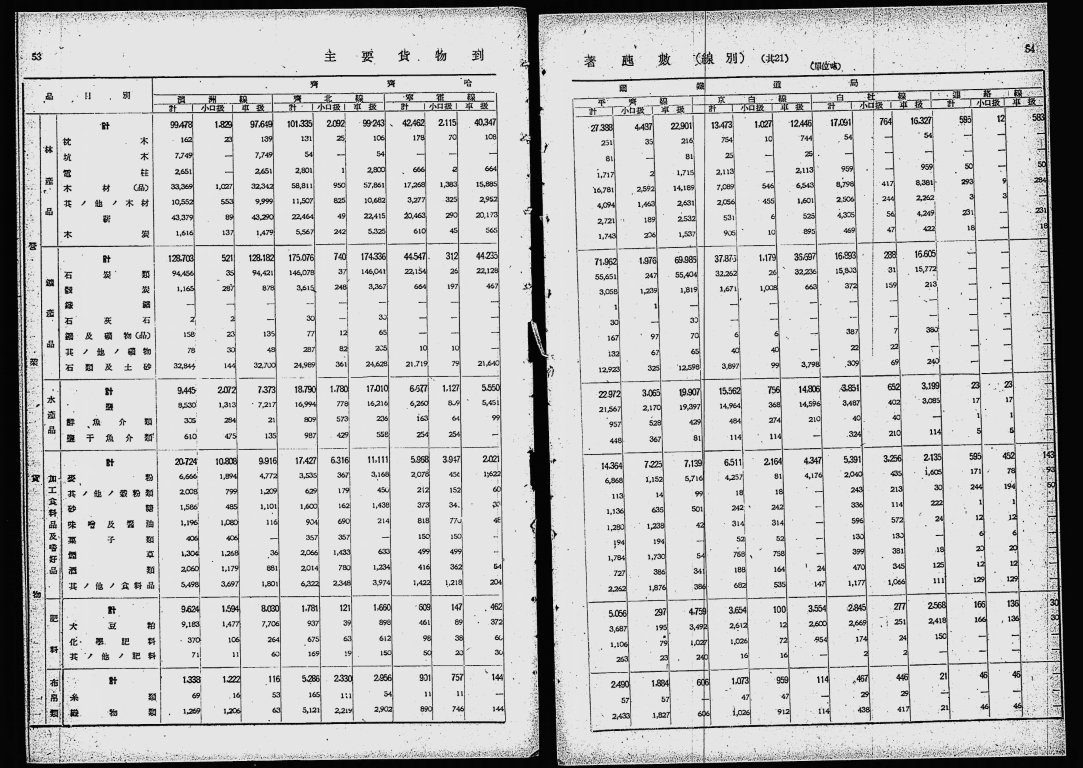 53
主要貨物到
品目別
哈
濱洲線 齊北線 寧霍線
計 小口扱 車扱 計 小口扱 車扱 計 小口扱 車扱
林產品
計 99,478 1,829 97,649 101,335 2,092 99,243 42,462 2,115 40,347
枕木 162 23 139 131 25 106 178 70 108
坑木 7,749 — 7,749 54 — 54 — — —
電柱 2,651 — 2,651 2,801 1 2,800 666 2 664
木材(品) 33,369 1,027 32,342 58,811 950 57,861 17,268 1,383 15,885
其ノ他ノ木材 10,552 553 9,999 11,507 825 10,682 3,277 325 2,952
薪 43,379 89 43,290 22,464 49 22,415 20,463 290 20,173
木炭 1,616 137 1,479 5,567 242 5,325 610 45 565
計 128,703 521 128,182 175,076 740 174,336 44,547 312 44,235
石炭類 94,456 35 94,421 146,078 37 146,041 22,154 26 22,128
炭 1,165 287 878 3,615 248 3,367 664 197 467
石灰石 2 2 — 30 — 30 — — —
158 23 135 77 12 65 — — —
其ノ他ノ礦物 78 30 48 287 82 205 10 10 —
石類及土砂 32,844 144 32,700 24,989 361 24,628 21,719 79 21,640
水產品
計 9,445 2,072 7,373 18,790 1,780 17,010 6,677 1,127 5,550
鹽 8,530 1,313 7,217 16,994 778 16,216 6,260 809 5,451
鮮魚介類 305 284 21 809 573 236 163 64 99
鹽干魚介類 610 475 135 987 429 558 254 254 —
加工食料品及嗜好品
計 20,724 10,808 9,916 17,427 6,316 11,111 5,968 3,947 2,021
麥粉 6,666 1,894 4,772 3,535 367 3,168 2,078 456 1,622
其ノ他ノ穀粉類 2,008 799 1,209 629 179 450 212 152 60
砂糖 1,586 485 1,101 1,600 162 1,438 373
味噌及醬油 1,196 1,080 116 904 690 214 818 770 48
菓子類 406 406 — 357 357 — 150 150 —
煙草 1,304 1,268 36 2,066 1,433 633 499 499 —
酒類 2,060 1,179 881 2,014 780 1,234 416 362 54
其ノ他ノ食料品 5,498 3,697 1,801 6,322 2,348 3,974 1,422 1,218 204
肥料
計 9,624 1,594 8,030 1,781 121 1,660 609 147 462
大豆粕 9,183 1,477 7,706 937 39 898 461 89 372
化學肥料 370 106 264 675 63 612 98 38 60
其ノ他ノ肥料 71 11 60 169 19 150 50 20 30
布帛類
計 1,338 1,222 116 5,286 2,330 2,956 901 757 144
糸類 69 16 53 165 111 54 11 11 —
織物類 1,269 1,206 63 5,121 2,219 2,902 890 746 144
54
著噸數(線別)(共21)
(單位噸)
鐵道局
平齊線 京白線 白杜線 連絡線
計 小口扱 車扱 計 小口扱 車扱 計 小口扱 車扱 計 小口扱 車扱
27,388 4,487 22,901 13,473 1,027 12,446 17,091 764 16,327 595 12 583
251 35 216 754 10 744 54 — 54 — — —
81 — 81 25 — 25 — — — — — —
1,717 2 1,715 2,113 — 2,113 959 — 959 50 — 50
16,781 2,592 14,189 7,089 546 6,543 8,798 417 8,381 293 9 284
4,094 1,463 2,631 2,056 455 1,601 2,506 244 2,262 3 3 —
2,721 189 2,532 531 6 525 4,305 56 4,249 231 — 231
1,743 206 1,537 905 10 895 469 47 422 18 — 18
71,962 1,976 69,986 37,876 1,179 36,697 16,893 288 16,605 — — —
55,651 247 55,404 32,262 26 32,236 15,803 31 15,772 — — —
3,058 1,239 1,819 1,671 1,008 663 372 159 213 — — —
1 1 — — — — — — — — — —
30 — 30 — — — — — — — — —
167 97 70 6 6 — 387 7 380 — — —
132 67 65 40 40 — 22 22 — — — —
12,923 325 12,598 3,897 99 3,798 309 69 240 — — —
22,972 3,065 19,907 15,562 756 14,806 3,851 652 3,199 23 23 —
21,567 2,170 19,397 14,964 368 14,596 3,487 402 3,085 17 17 —
957 528 429 484 274 210 40 40 — 1 1 —
448 367 81 114 114 — 324 210 114 5 5 —
14,364 7,225 7,139 6,511 2,164 4,347 5,391 3,256 2,135 595 452 143
6,868 1,152 5,716 4,257 81 4,176 2,040 435 1,605 171 78 93
113 14 99 18 18 — 243 213 30 244 194 50
1,136 635 501 242 242 — 336 114 222 1 1 —
1,280 1,238 42 314 314 — 596 572 24 12 12 —
194 194 — 52 52 — 130 130 — 6 6 —
1,784 1,730 54 758 758 — 399 381 18 20 20 —
727 386 341 188 164 24 470 345 125 12 12 —
2,262 1,876 386 682 535 147 1,177 1,066 111 129 129 —
5,056 297 4,759 3,654 100 3,554 2,845 277 2,568 166 136 30
3,687 195 3,492 2,612 12 2,600 2,669 251 2,418 166 136 30
1,106 79 1,027 1,026 72 954 174 24 150 — — —
263 23 240 16 16 — 2 2 — — — —
2,490 1,884 606 1,073 959 114 467 446 21 46 46 —
57 57 — 47 47 — 29 29 — — — —
2,433 1,827 606 1,026 912 114 438 417 21 46 46 —